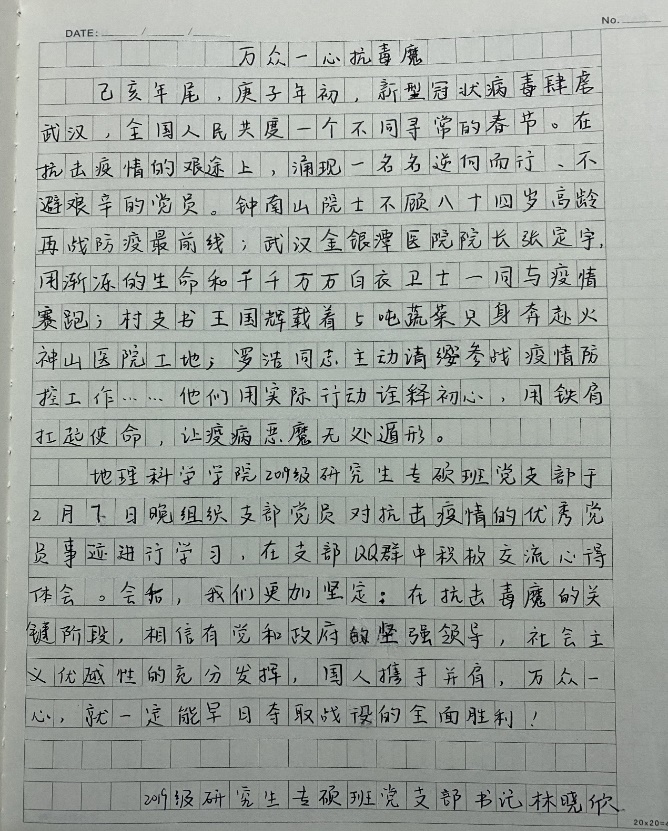 No.
DATE: / /
万众一心抗毒魔
己亥年尾，庚子年初，新型冠状病毒肆虐
武汉，全国人民共度一个不同寻常的春节。在
抗击疫情的艰途上，涌现一名名逆向而行、不
避艰辛的党员。钟南山院士不顾八十四岁高龄
再战防疫最前线；武汉金银潭医院院长张定宇，
用渐冻的生命和千千万万白衣卫士一同与疫情
赛跑；村支书王国辉载着5吨蔬菜只身奔赴火
神山医院工地；罗浩同志主动请缨参战疫情防
控工作……他们用实际行动诠释初心，用铁肩
扛起使命，让疫病恶魔无处遁形。
地理科学学院2019级研究生专硕班党支部于
2月 日晚组织支部党员对抗击疫情的优秀党
员事迹进行学习，在支部QQ群中积极交流心得
体会。会后，我们更加坚定：在抗击毒魔的关
键阶段，相信有党和政府的坚强领导，社会主
义优越性的充分发挥，国人携手并肩，万众一
心，就一定能早日夺取战役的全面胜利！
2019级研究生专硕班党支部书记林晓欣
20x20=